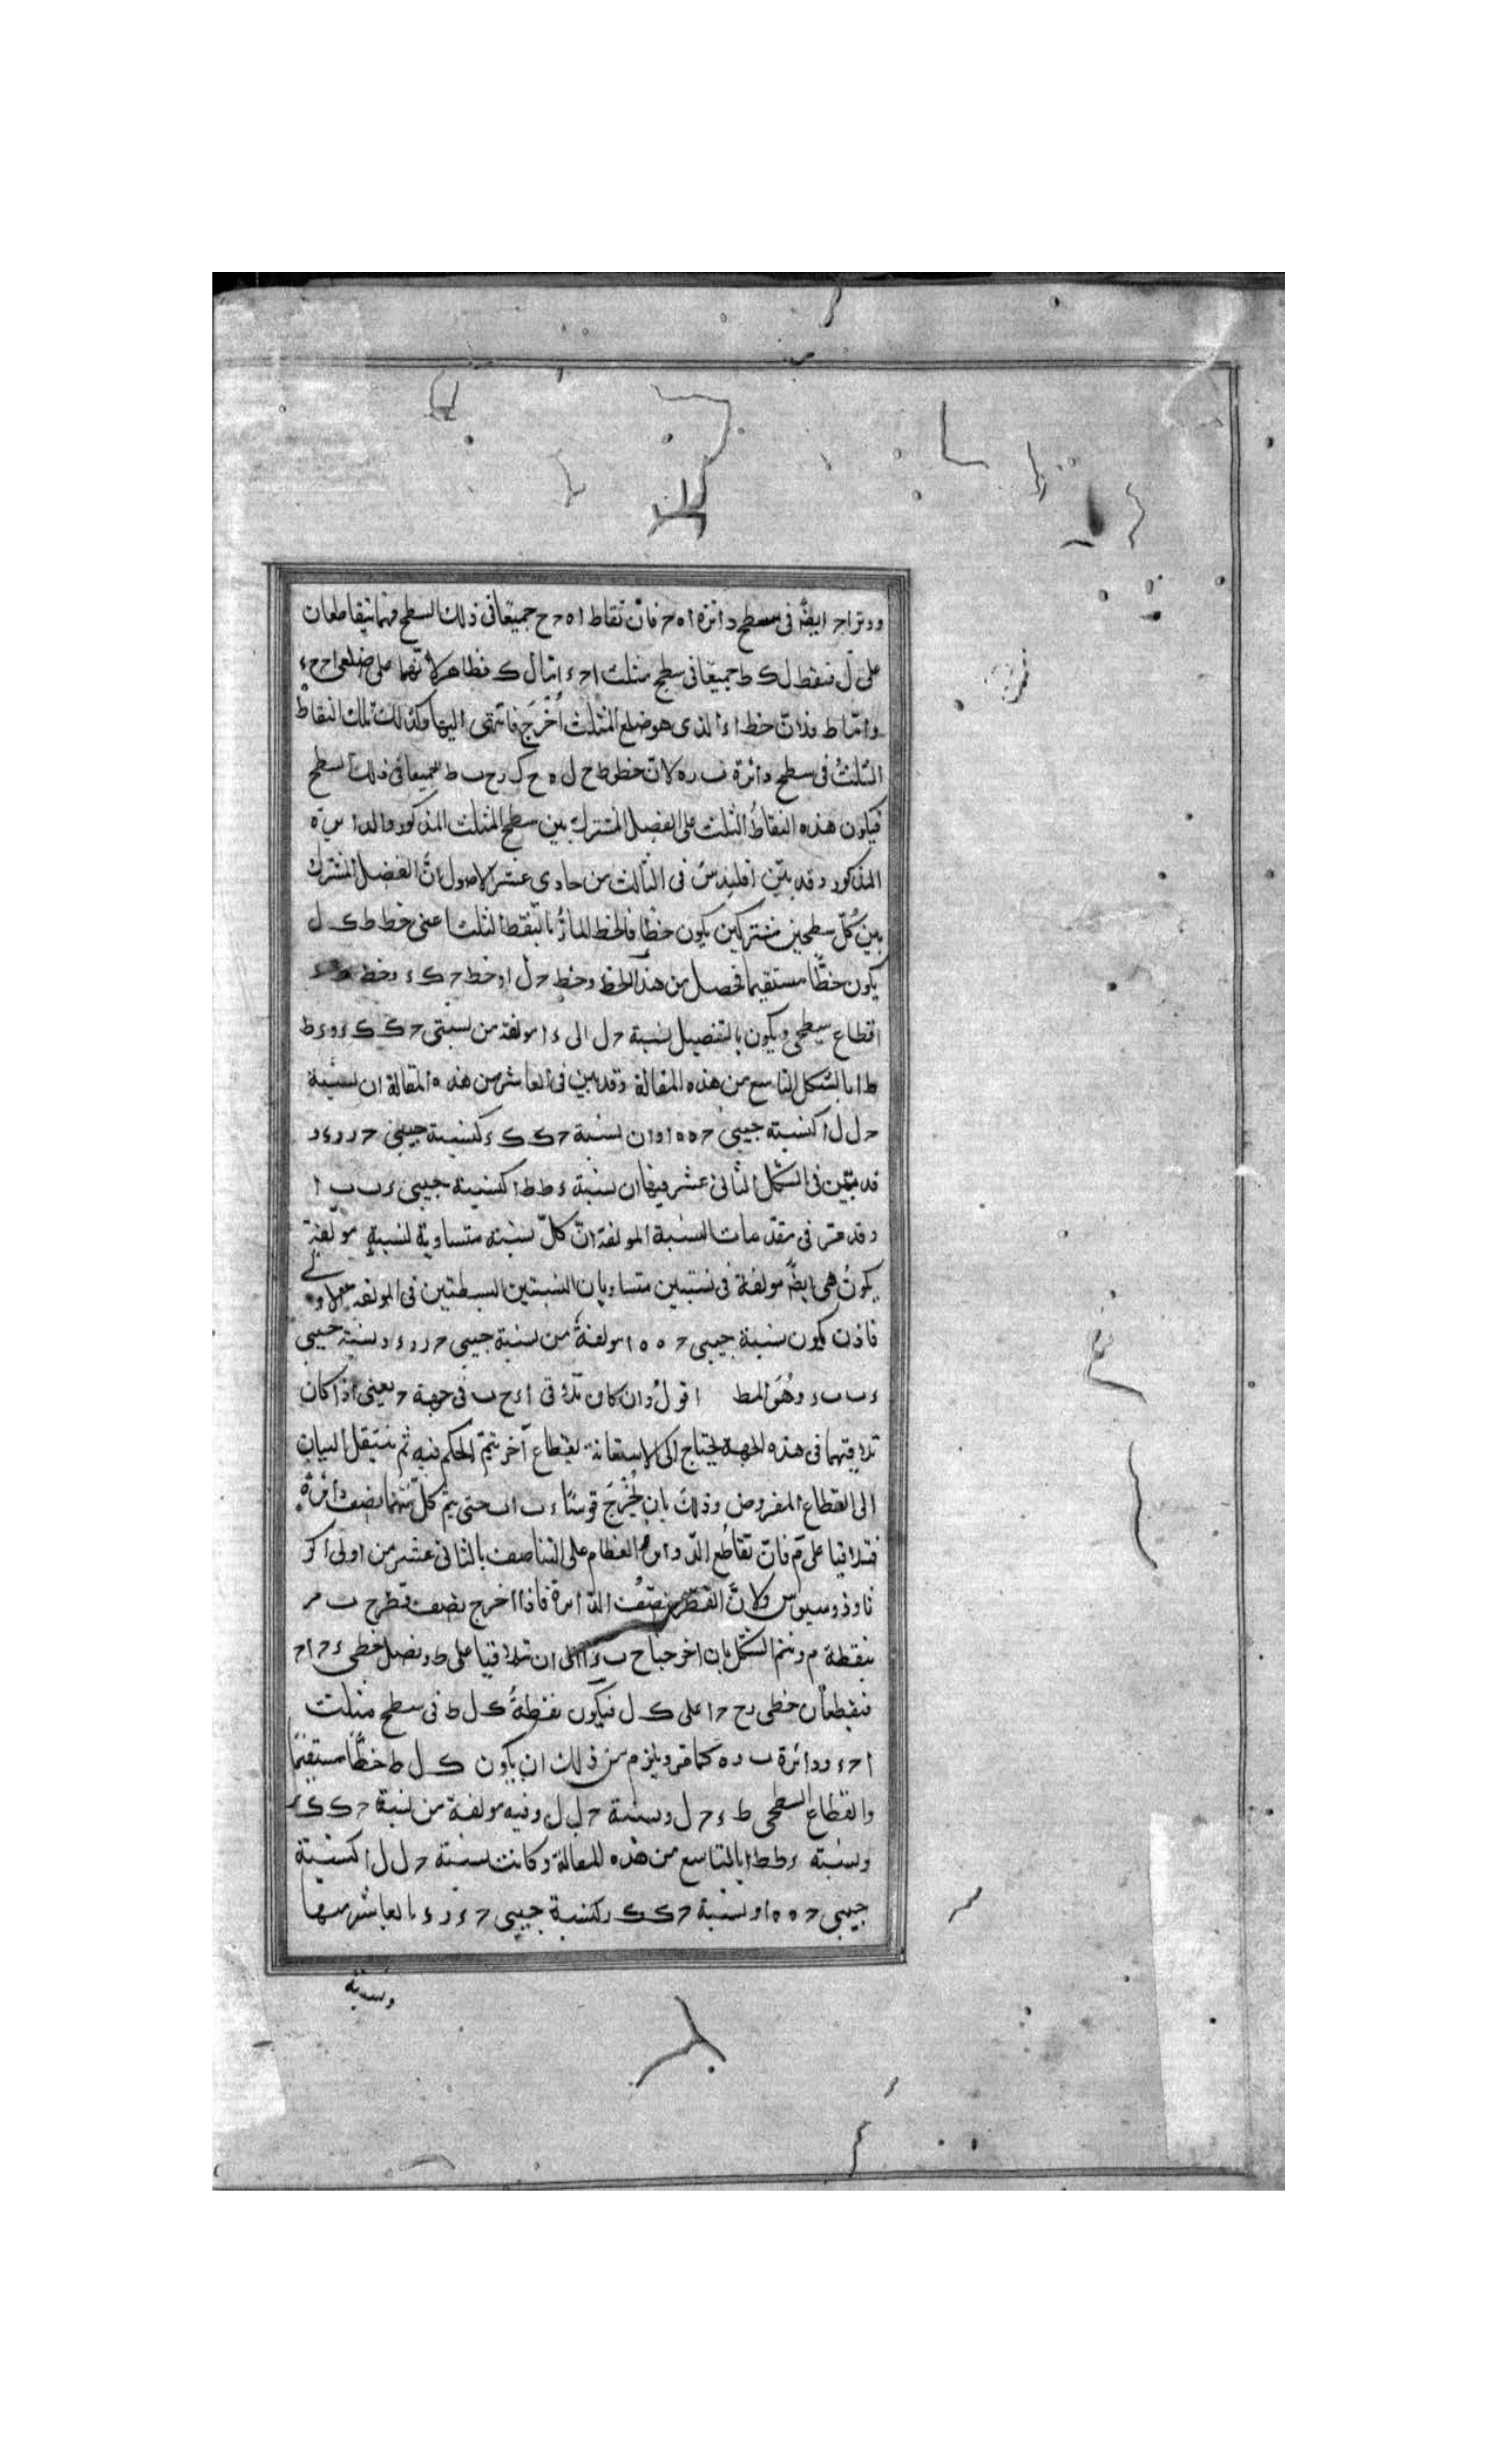 ووتر اح ايضً فى سطح دائرة ا ه ح فان نقاط ا ه ح ح جميعًا فى ذلك السطح فهما يتقاطعان
على ل فنقط ل ك ط جميعًا فى سطح مثلث ا ح ء امّا ل ك فظاهر لانّهما على ضلعى ا ح ح ء
وامّا ط فلانّ خط ا ء الذى هو ضلع المثلث اُخرجَ فانتهى اليها وكذلك تلك النقاط
الثلثُ فى سطح دائرة ب ر ه لانّ خطوط ح ل ه ح ك ر ح ب ط جميعًا فى ذلك السطح
فيكون هذه النقاطُ الثلث على الفصل المشترك بين سطح المثلث المذكور والدائرة
المذكور وقد بيّن اقليدس فى الثالث من حادى عشر الاصول انّ الفصل المشترك
بين كُلّ سطحين مشتركين يكون خطًّا فالخط المارُّ بالنقط الثلث اعنى خط ط ك ل
يكون خطًّا مستقيما فحصل من هذا الخط وخط ح ل ا وخط ح ك ء وخط
القطاع سطحى ويكون بالتفصيل نسبة ح ل الى ء ا مولفة من نسبتى ح ك ك ء و ء ط
ط ا بالشكل التاسع من هذه المقالة وقد بيّن فى العاشر من هذه المقالة ان نسبة
ح ل ل ا كنسبة جيبى ح ه ه ا وان نسبة ح ك ك ء كنسبة جيبى ح ر ر ء و
قد بيّن فى الشكل الثانى عشر فيها ان نسبة ء ط ط ا كنسبة جيبى ء ب ب ا
وقد مرّ فى مقدّمات النسبة المولفة انّ كلّ نسبته متساوية لنسبةٍ مولّفةٍ
يكونُ هى ايضً مولفة فى نسبتين متساويان النسبتين البسيطتين فى المولفه
فاذن يكون نسبة جيبى ح ه ه ا مولفةً من نسبة جيبى ح ر ر ء ونسبة جيبى
ء ب ب ء وهُوَ المط اقولُ وان كان تلاقى ا ء ح ب فى جهة ح يعنى اذا كان
تلاقيهما فى هذه الجهة يحتاج الى الاستعانة بقطاع آخر يتمّ الحكم فيه ثم ينتقل البيان
الى القطاع المفروض وذلك بان يُخْرَجَ قوسَا ء ب ا ب حتى يتمّ كلّ منهما نصف دائرة
فتلاقيا على مَ فانّ تقاطع الدوائر العظام على التناصف بالثانى عشر من اولى اكر
ثاوذوسيوس ولانّ القطر ينصّفُ الدّائرة فاذا اخرج نصف قطر ح ب مر
بنقطة م ونتم الشكل بان اخرجنا ح ب ء ا الى ان تلاقيا على ط ونصل خطى ء ح ا ح
فيقطعان خطى رح ح ا على ك ل فيكون نقطةُ ك ل ط فى سطح مثلث
ا ح ء ودائرة ب ر ه كما مرّ ويلزم من ذلك ان يكون ك ل ط خطًّا مستقيمًا
والقطاع السطحى ط ء ح ل ونسبة ح ل ل وفيه مولفة من نسبة ح ك ك ء
ونسبته ء ط ط ا بالتاسع من هذه المقالة وكانت نسبة ح ل ل ا كنسبة
جيبى ح ه ه ا ونسبة ح ك ك ر كنسبة جيبى ح ء ر ء بالعاشر منها
ونسبة